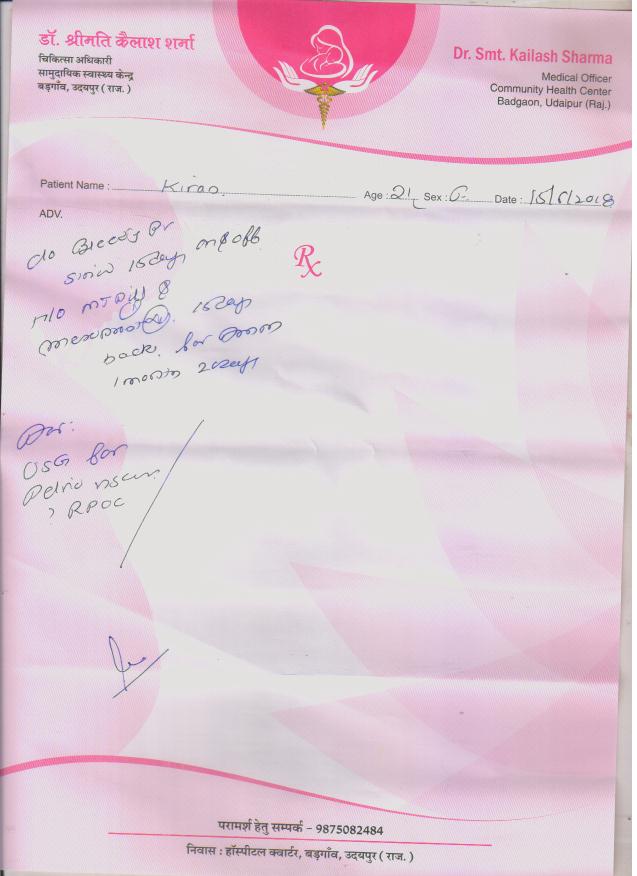 डॉ. श्रीमति कैलाश शर्मा
चिकित्सा अधिकारी
सामुदायिक स्वास्थ्य केन्द्र
बड़गाँव, उदयपुर ( राज. )
Dr. Smt. Kailash Sharma
Medical Officer
Community Health Center
Badgaon, Udaipur (Raj.)
Patient Name : Kiran Age : 21 Sex : Date : 15/5/2018
ADV.
Rx
c/o Bleeding Pr
since 15 days on & off
H/o
15 days
back. for
1 month 2 days
Adv:
USG for
Pelvic
? RPOC
परामर्श हेतु सम्पर्क – 9875082484
निवास : हॉस्पीटल क्वार्टर, बड़गाँव, उदयपुर ( राज. )